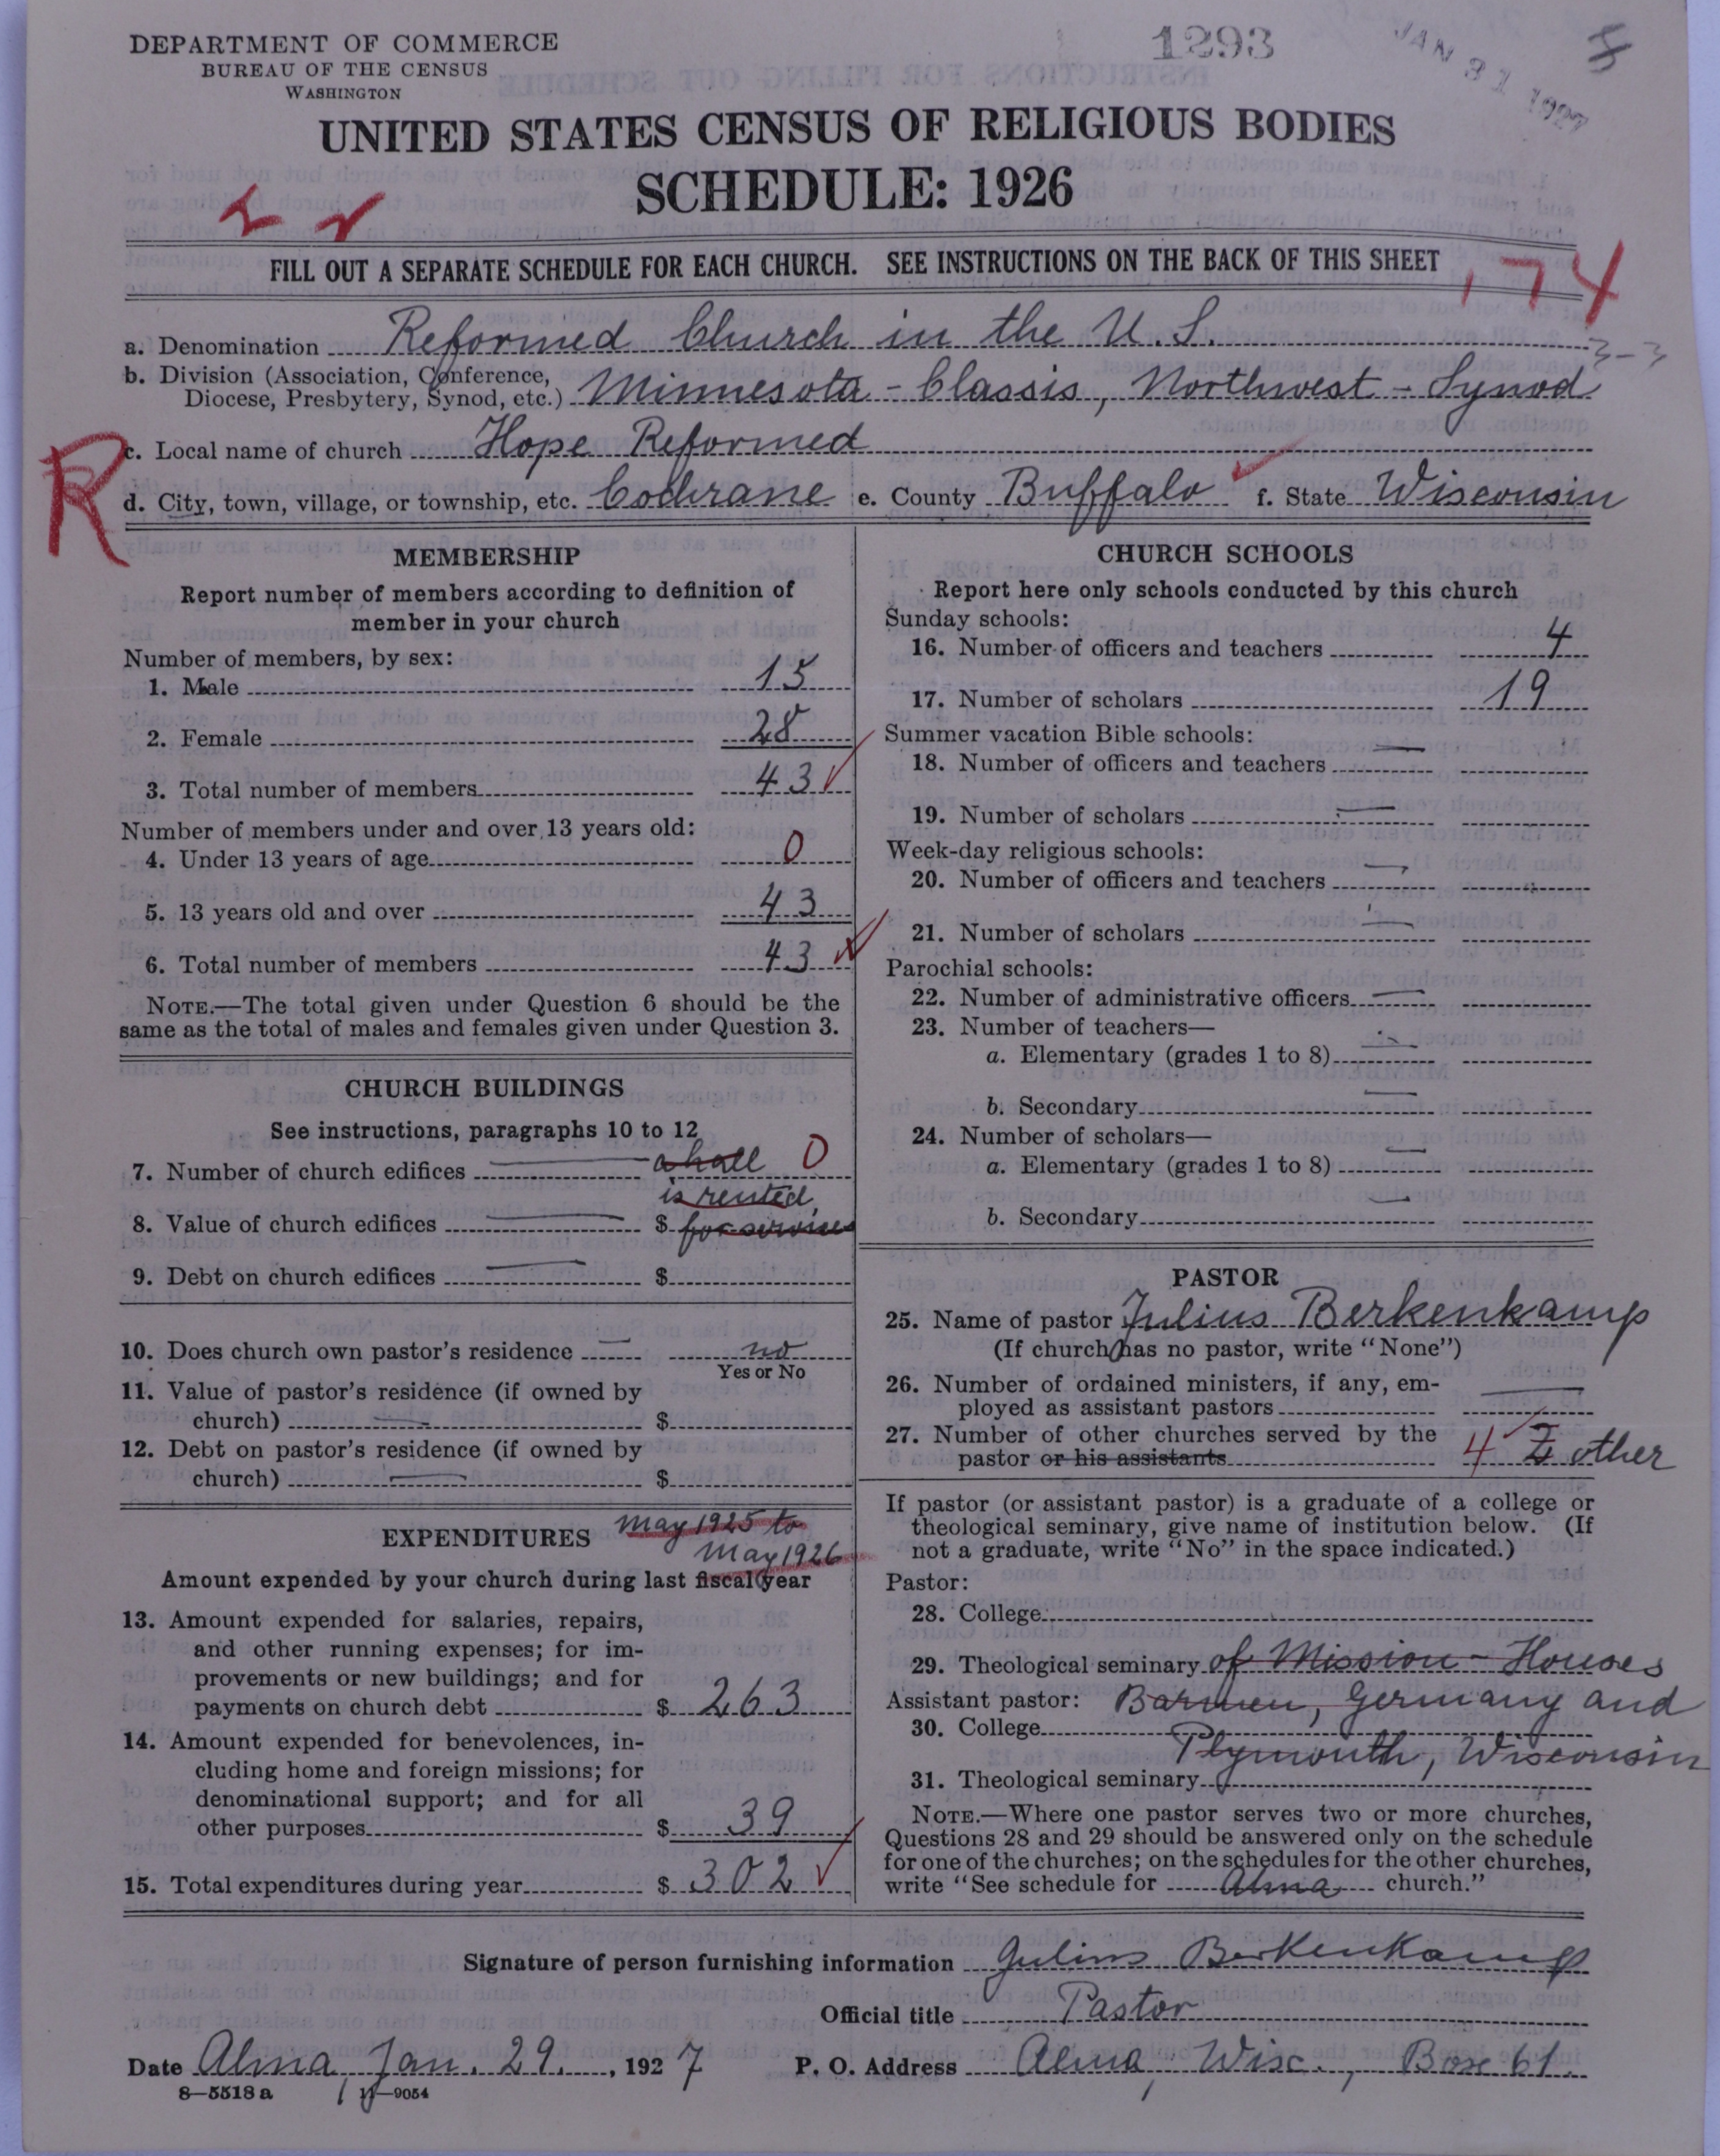 DEPARTMENT OF COMMERCE
BUREAU OF THE CENSUS
WASHINGTON
1293
JAN 31 1927
UNITED STATES CENSUS OF RELIGIOUS BODIES
SCHEDULE: 1926
FILL OUT A SEPARATE SCHEDULE FOR EACH CHURCH. SEE INSTRUCTIONS ON THE BACK OF THIS SHEET
174
a. Denomination Reformed Church in the U. S.
3-3
b. Division (Association, Conference, Diocese, Presbytery, Synod, etc.) Minnesota - Classis, Northwest - Synod
R
c. Local name of church Hope Reformed
d. City, town, village, or township, etc. Cochrane e. County Buffalo f. State Wisconsin
MEMBERSHIP
Report number of members according to definition of
member in your church
Number of members, by sex:
1. Male 15
2. Female 28
3. Total number of members 43
Number of members under and over 13 years old:
4. Under 13 years of age 0
5. 13 years old and over 43
6. Total number of members 43
NOTE.—The total given under Question 6 should be the
same as the total of males and females given under Question 3.
CHURCH BUILDINGS
See instructions, paragraphs 10 to 12
7. Number of church edifices a hall 0
is rented
8. Value of church edifices $ for services
9. Debt on church edifices $
10. Does church own pastor's residence no
Yes or No
11. Value of pastor's residence (if owned by
church) $
12. Debt on pastor's residence (if owned by
church) $
EXPENDITURES
May 1925 to
May 1926
Amount expended by your church during last fiscal year
13. Amount expended for salaries, repairs,
and other running expenses; for im-
provements or new buildings; and for
payments on church debt $ 263
14. Amount expended for benevolences, in-
cluding home and foreign missions; for
denominational support; and for all
other purposes $ 39
15. Total expenditures during year $ 302
CHURCH SCHOOLS
Report here only schools conducted by this church
Sunday schools:
16. Number of officers and teachers 4
17. Number of scholars 19
Summer vacation Bible schools:
18. Number of officers and teachers —
19. Number of scholars —
Week-day religious schools:
20. Number of officers and teachers —
21. Number of scholars —
Parochial schools:
22. Number of administrative officers —
23. Number of teachers—
a. Elementary (grades 1 to 8) —
b. Secondary —
24. Number of scholars—
a. Elementary (grades 1 to 8) —
b. Secondary —
PASTOR
25. Name of pastor Julius Berkenkamp
(If church has no pastor, write "None")
26. Number of ordained ministers, if any, em-
ployed as assistant pastors —
27. Number of other churches served by the
pastor or his assistants 4 2 other
If pastor (or assistant pastor) is a graduate of a college or
theological seminary, give name of institution below. (If
not a graduate, write "No" in the space indicated.)
Pastor:
28. College
29. Theological seminary of Mission - Houses
Assistant pastor: Barmen, Germany and
30. College
Plymouth, Wisconsin
31. Theological seminary
NOTE.—Where one pastor serves two or more churches,
Questions 28 and 29 should be answered only on the schedule
for one of the churches; on the schedules for the other churches,
write "See schedule for Alma church."
Signature of person furnishing information Julius Berkenkamp
Official title Pastor
Date Alma, Jan. 29., 1927 P. O. Address Alma, Wisc., Box 61.
8—5518 a 11—9054